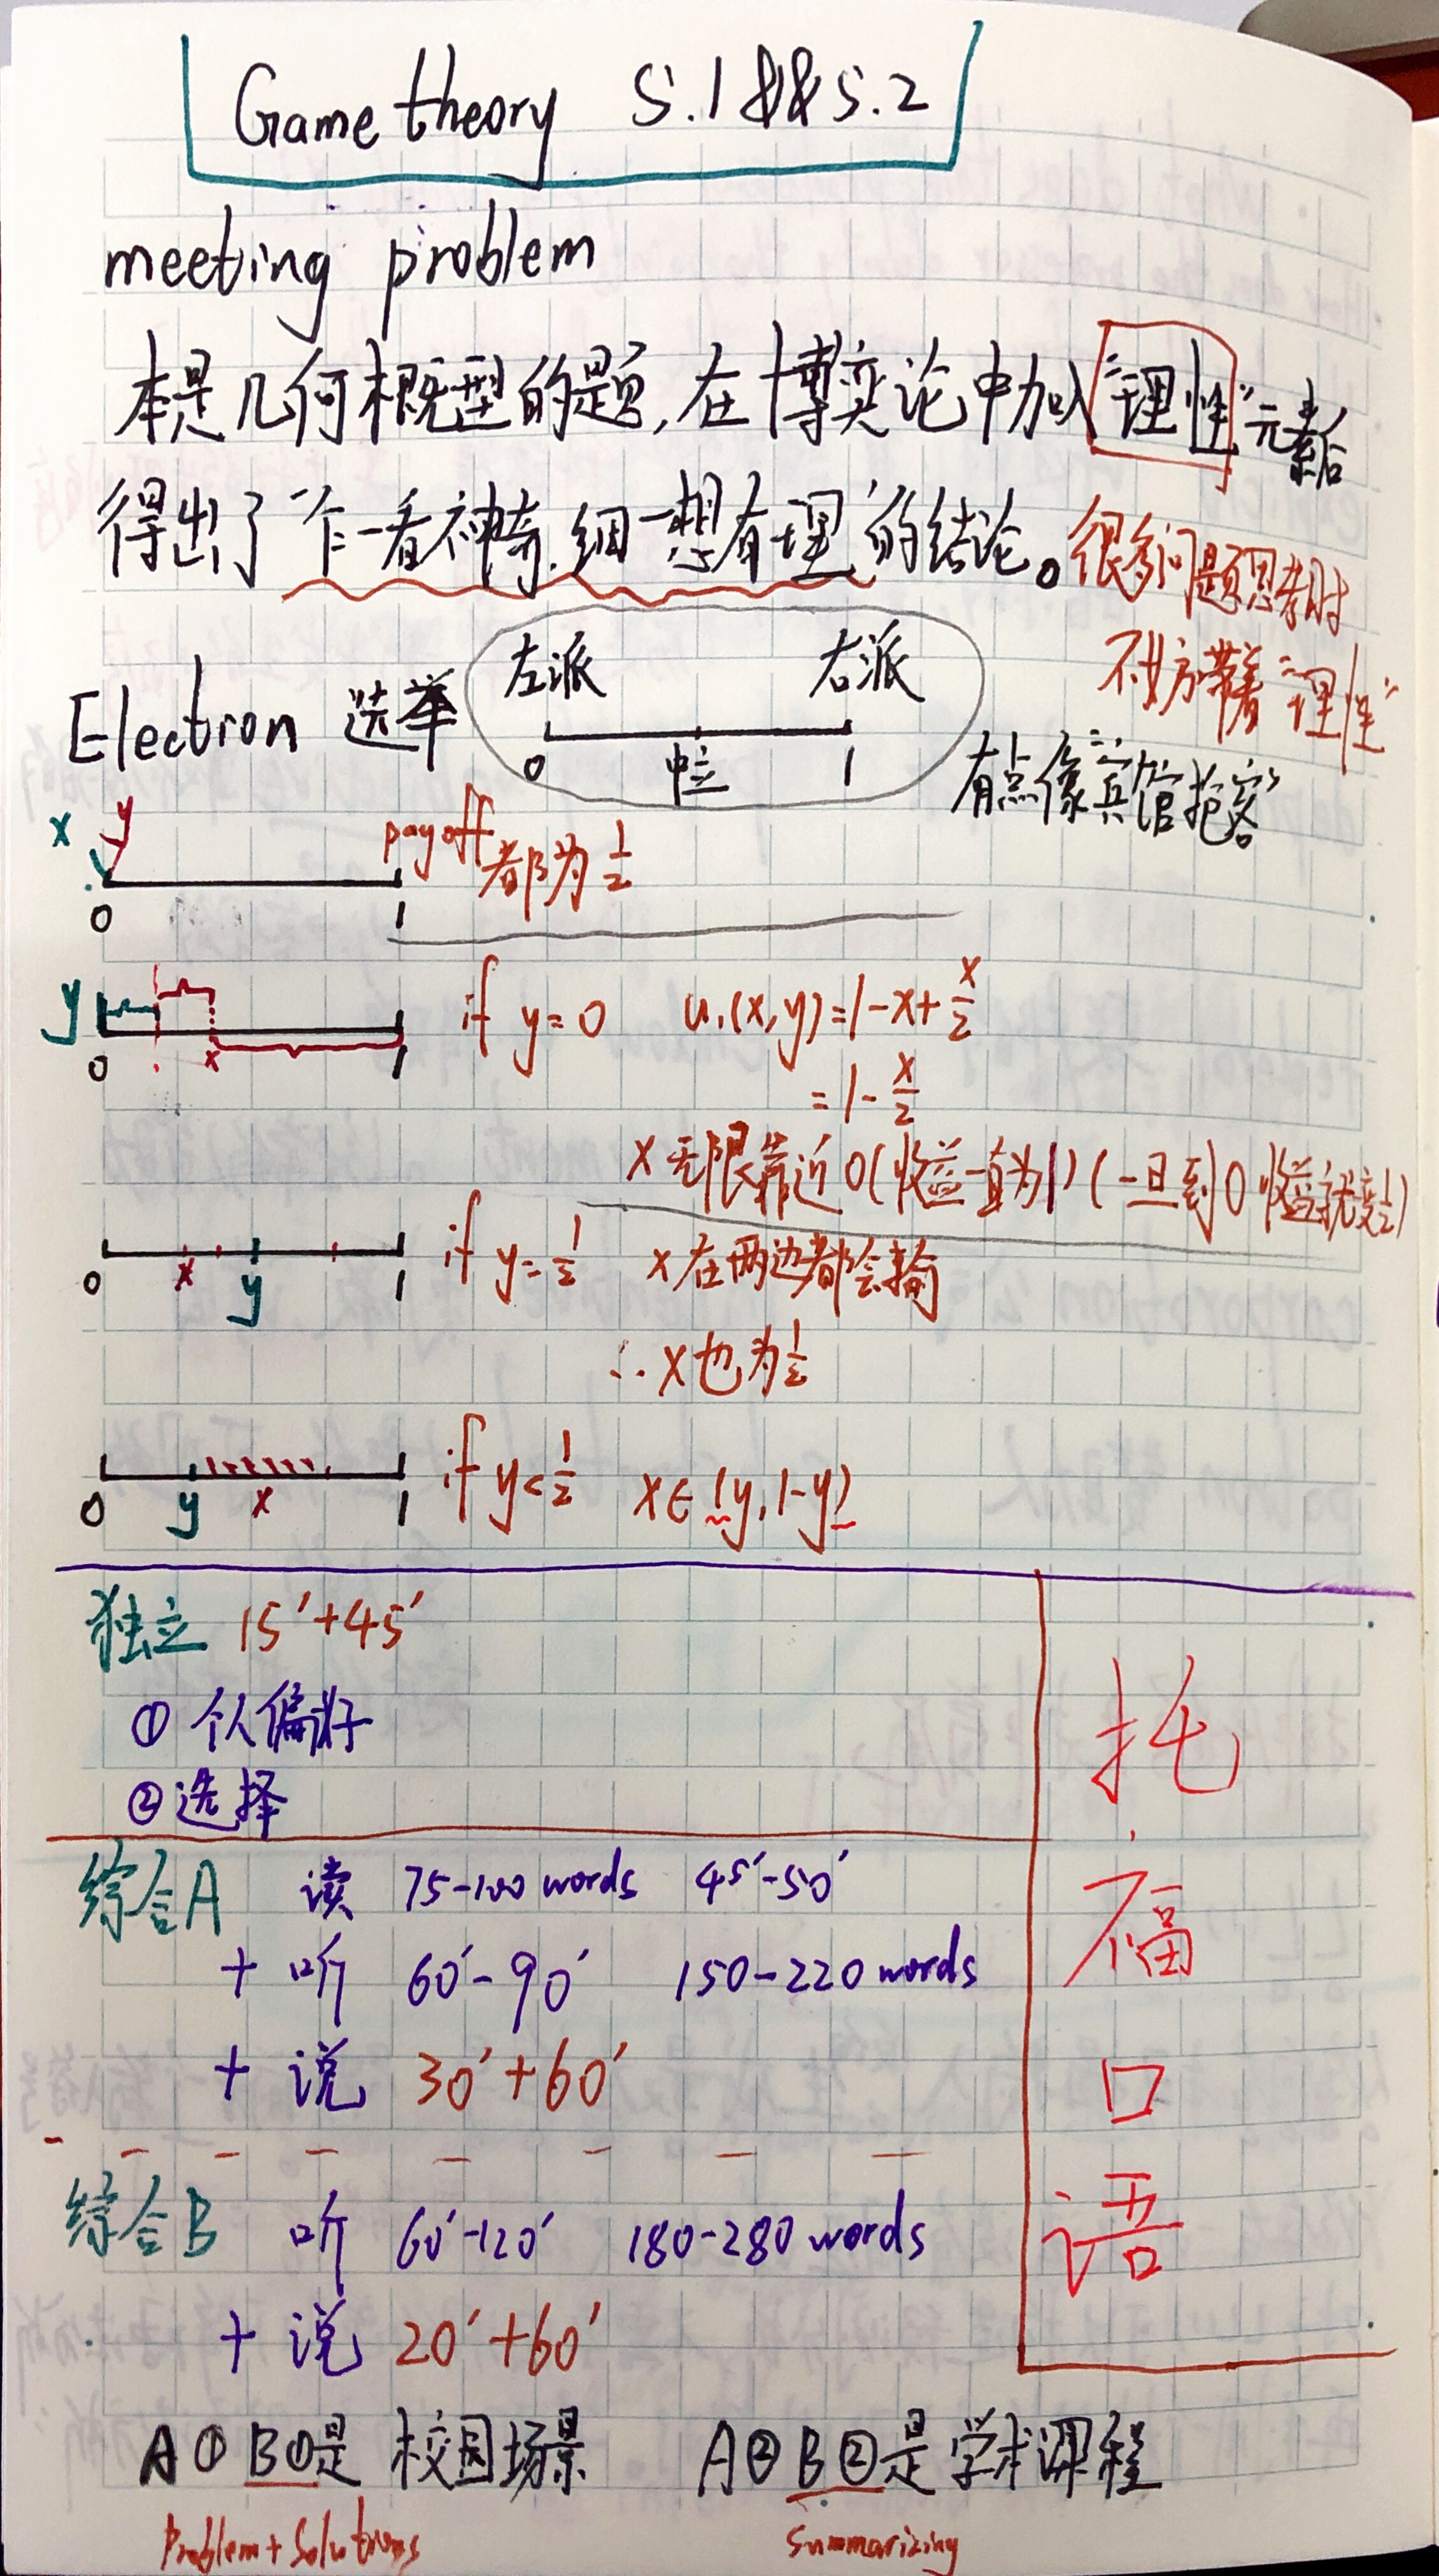 Game theory 5.1 && 5.2
meeting problem
本是几何概型的题,在博弈论中加入“理性”元素后
得出了“乍一看神奇,细一想有理”的结论。很多问题思考时
不妨带着“理性”
Electron 选举
左派 右派
0 中立 1
有点像“宾馆抢客”
x y
0 1
payoff
都为 1/2
y
0 x 1
if y=0 u₁(x,y)=1-x+x/2
=1-x/2
x无限靠近0(收益一直为1)(一旦到0收益就变1/2)
0 x y 1
if y=1/2 x在两边都会输
∴x也为1/2
0 y x 1
if y<1/2 x∈(y,1-y)
独立 15′+45′
① 个人偏好
② 选择
综合A 读 75-100 words 45′-50′
+ 听 60′-90′ 150-220 words
+ 说 30′+60′
综合B 听 60′-120′ 180-280 words
+ 说 20′+60′
托
福
口
语
A① B①是 校园场景 A② B②是学术课程
Problem+Solutions Summarizing